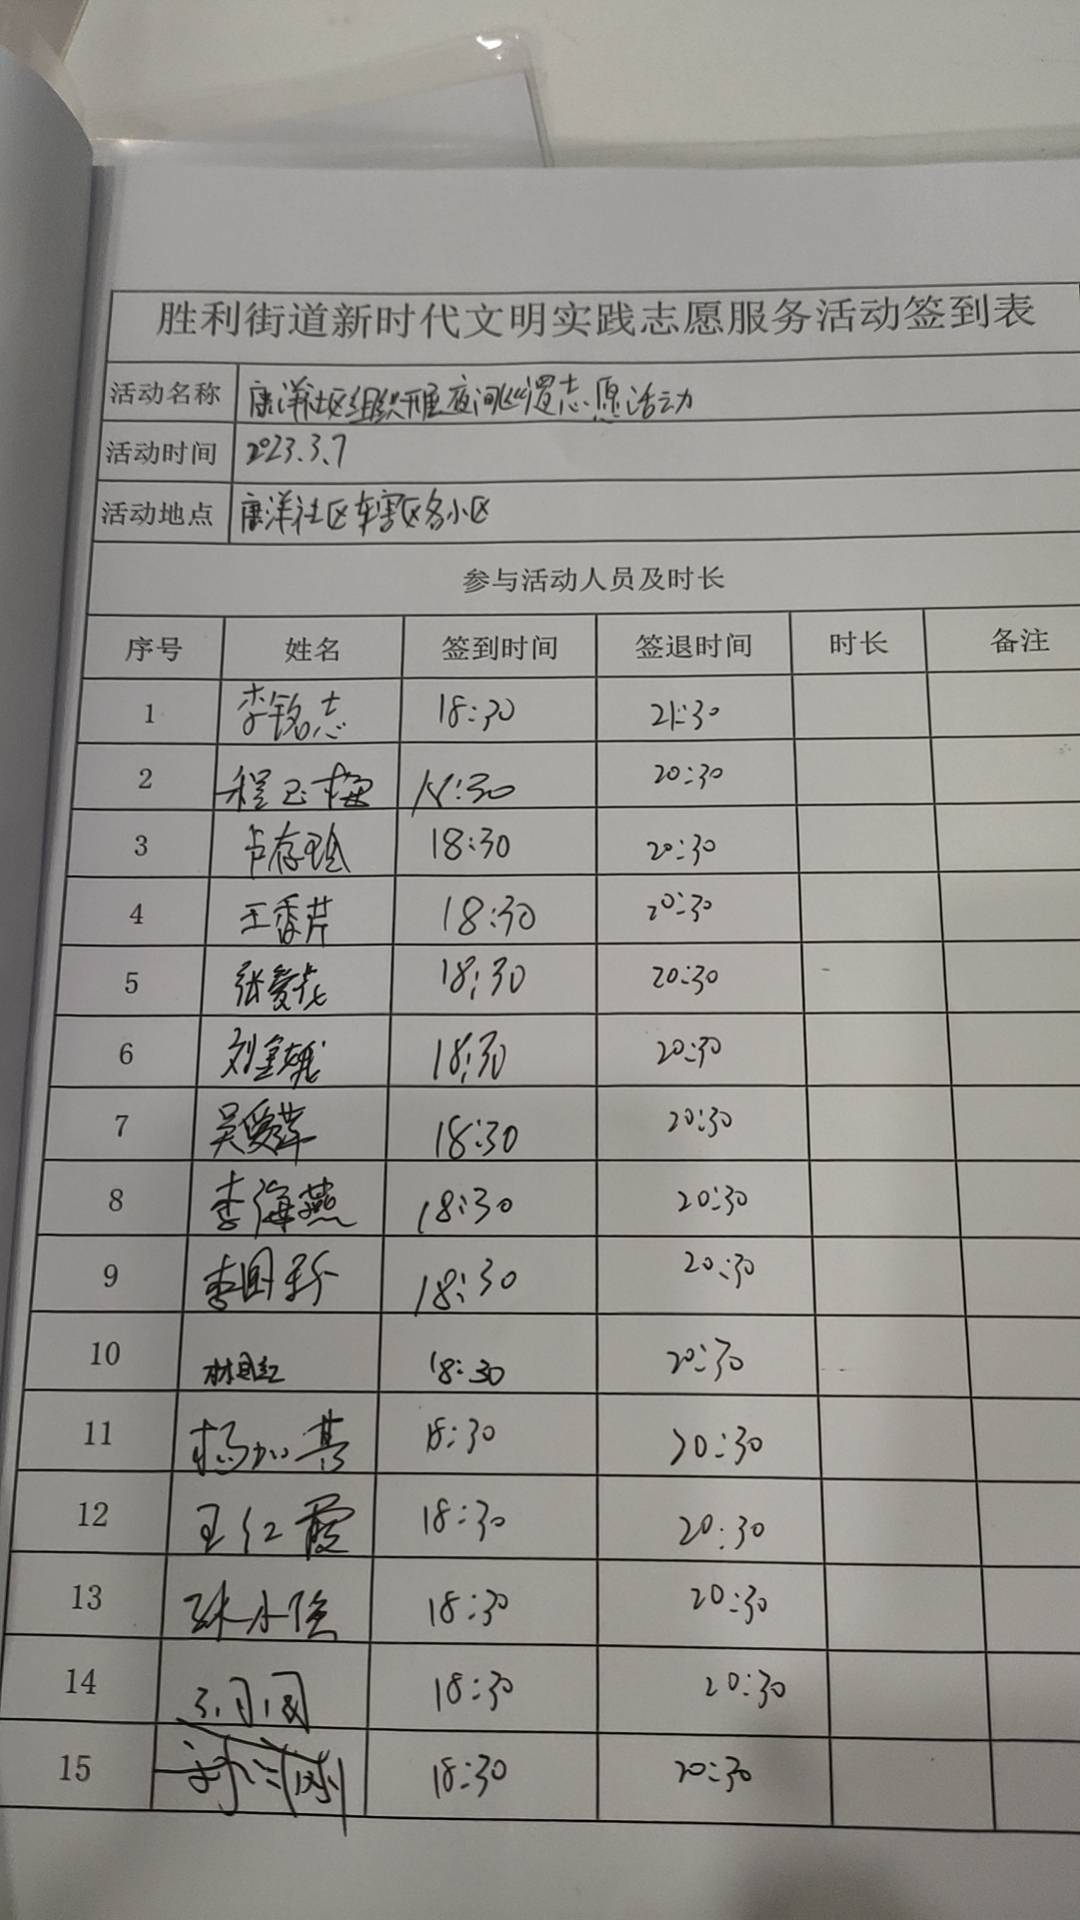 胜利街道新时代文明实践志愿服务活动签到表
活动名称 康洋社区组织开展夜间巡逻志愿活动
活动时间 2023.3.7
活动地点 康洋社区车害区各小区
参与活动人员及时长
序号 姓名 签到时间 签退时间 时长 备注
1 李铭志 18:30 21:30
2 程玉梅 18:30 20:30
3 18:30 20:30
4 王香芹 18:30 20:30
5 张爱花 18:30 20:30
6 18:30 20:30
7 吴爱萍 18:30 20:30
8 李海燕 18:30 20:30
9 18:30 20:30
10 18:30 20:30
11 18:30 20:30
12 王红霞 18:30 20:30
13 18:30 20:30
14 18:30 20:30
15 18:30 20:30